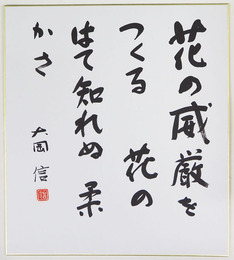 花の威厳を
つくる　花の
はて知れぬ　柔
かさ
大岡信